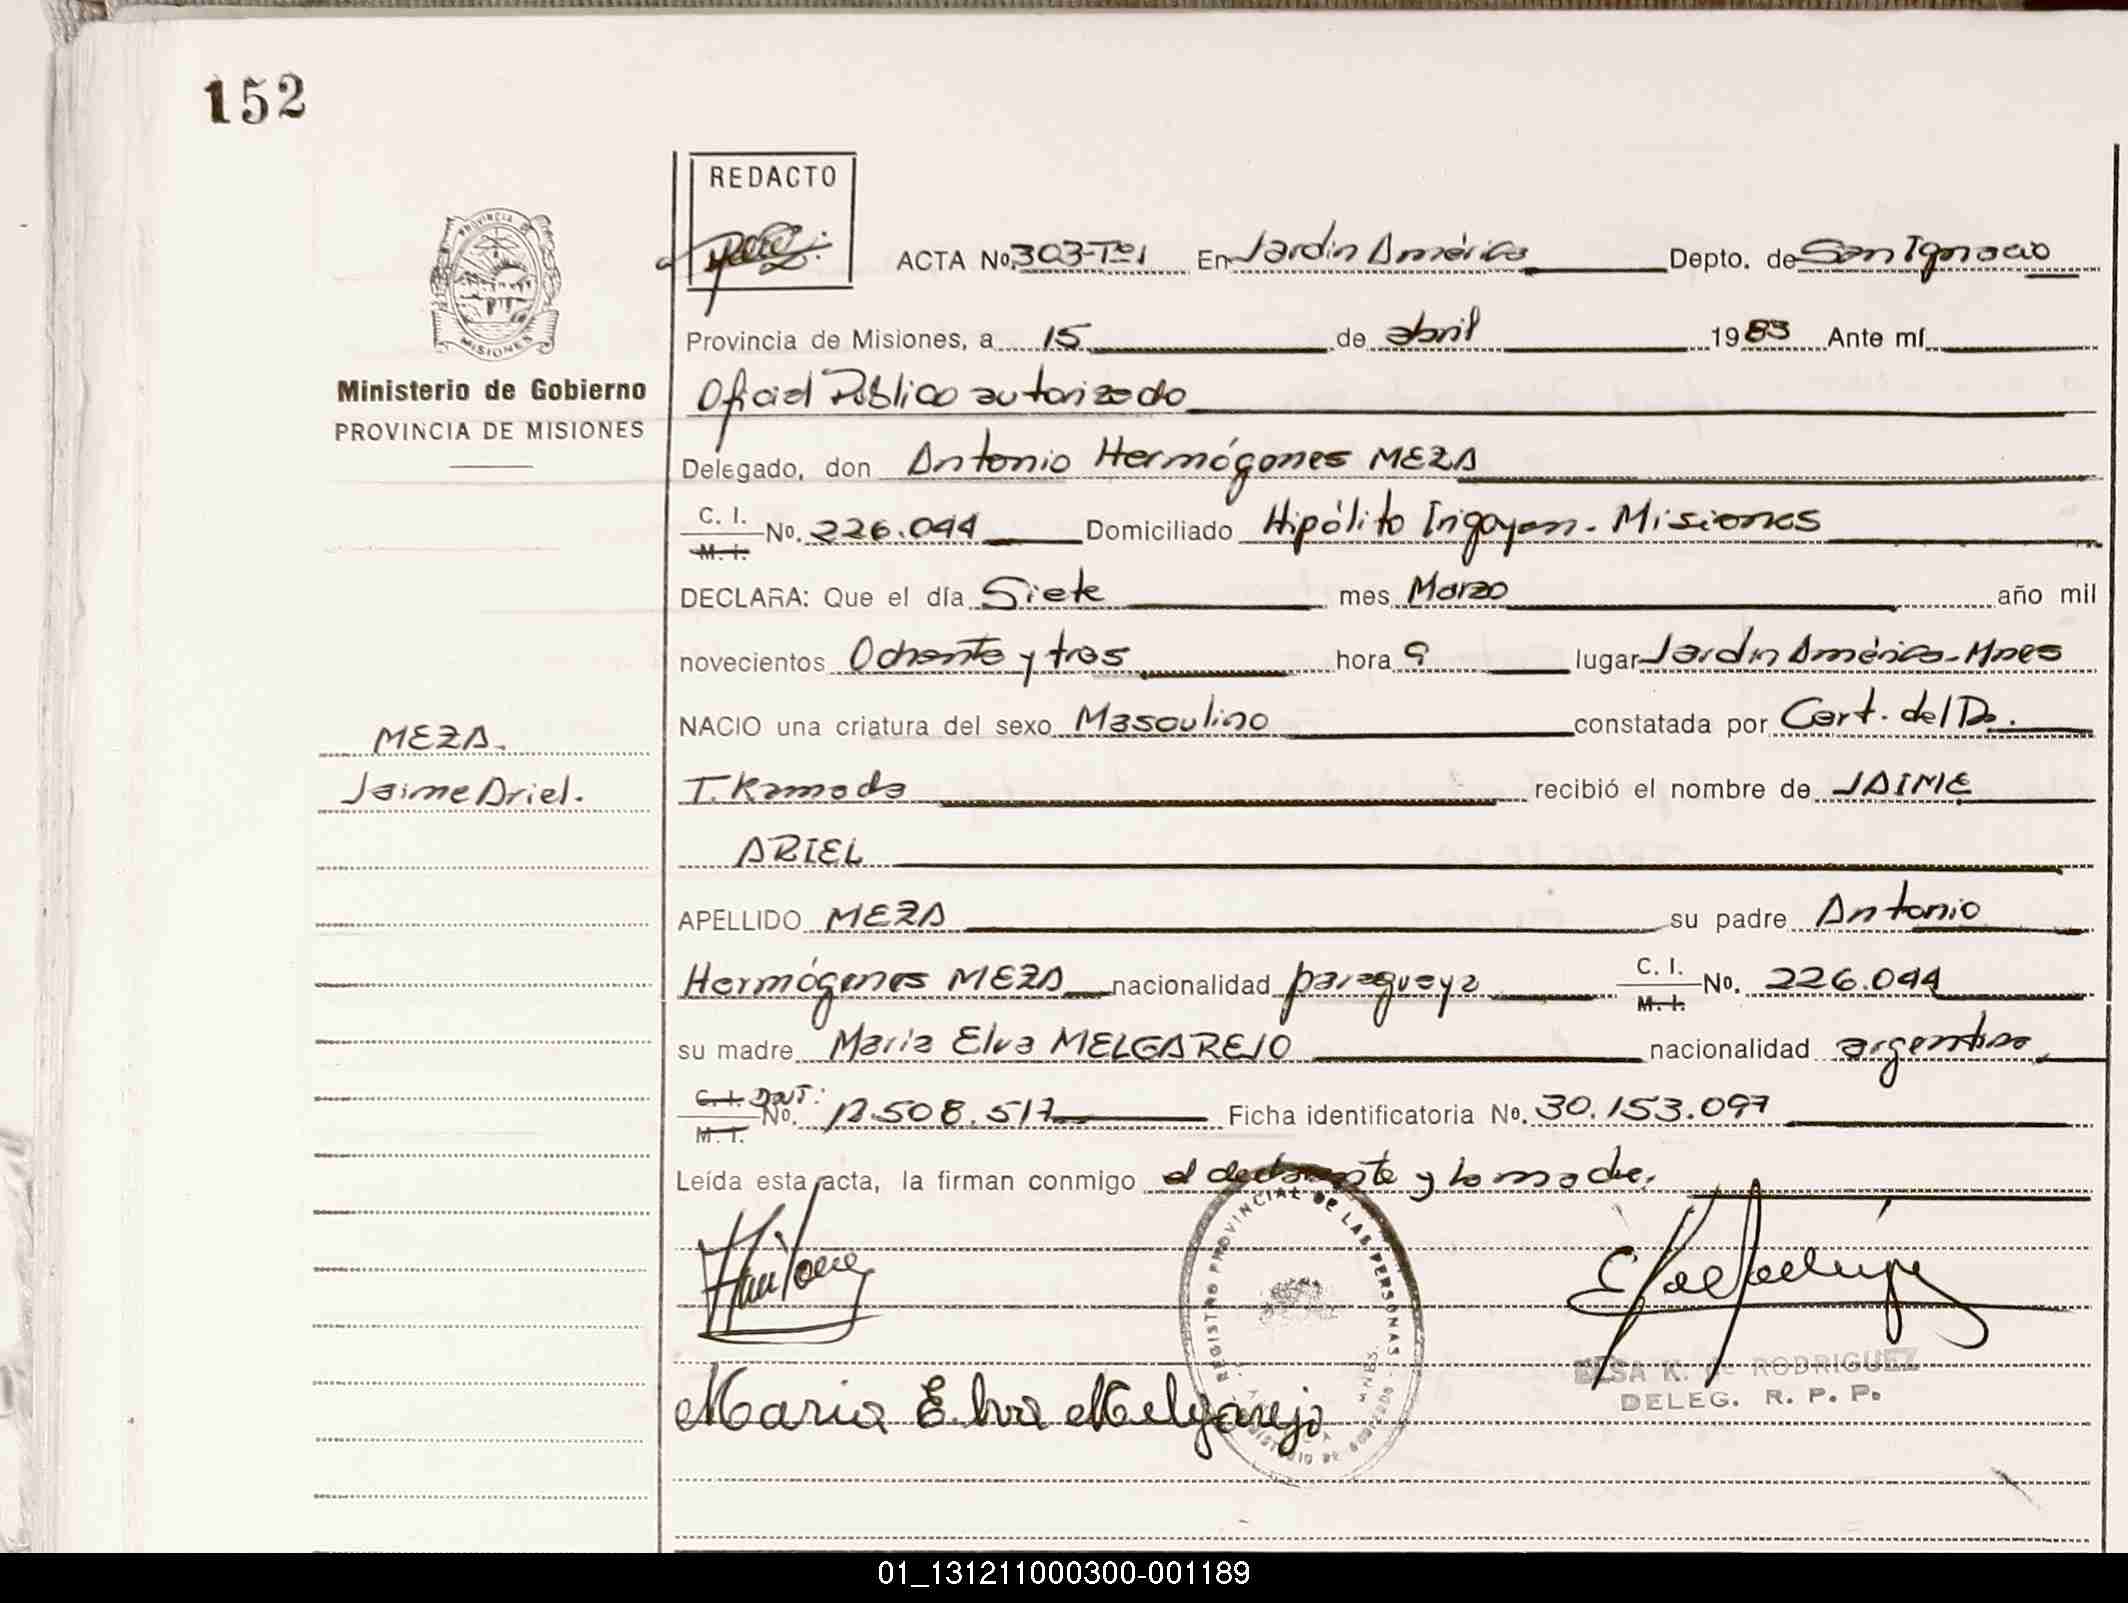 152
REDACTO
PROVINCIA
MISIONES
Ministerio de Gobierno
PROVINCIA DE MISIONES
MEZA.
Jaime Ariel.
ACTA No. 303-Tº1 En Jardín América Depto. de San Ignacio
Provincia de Misiones, a 15 de abril 1983 Ante mí
Oficial Público autorizado
Delegado, don Antonio Hermógenes MEZA
C. I. M. I. No. 226.044 Domiciliado Hipólito Irigoyen - Misiones
DECLARA: Que el día Siete mes Marzo año mil
novecientos Ochenta y tres hora 9 lugar Jardín América - Mnes
NACIO una criatura del sexo Masculino constatada por Cert. del Dr.
T. Kamada recibió el nombre de JAIME
ARIEL
APELLIDO MEZA su padre Antonio
Hermógenes MEZA nacionalidad paraguaya C. I. M. I. No. 226.044
su madre María Elva MELGAREJO nacionalidad argentina
C. I. M. I. No. 12.508.517 Ficha identificatoria No. 30.153.097
Leída esta acta, la firman conmigo el declarante y la madre.
REGISTRO PROVINCIAL DE LAS PERSONAS
Maria Elva Melgarejo
ELSA K. de RODRIGUEZ
DELEG. R. P. P.
01_131211000300-001189